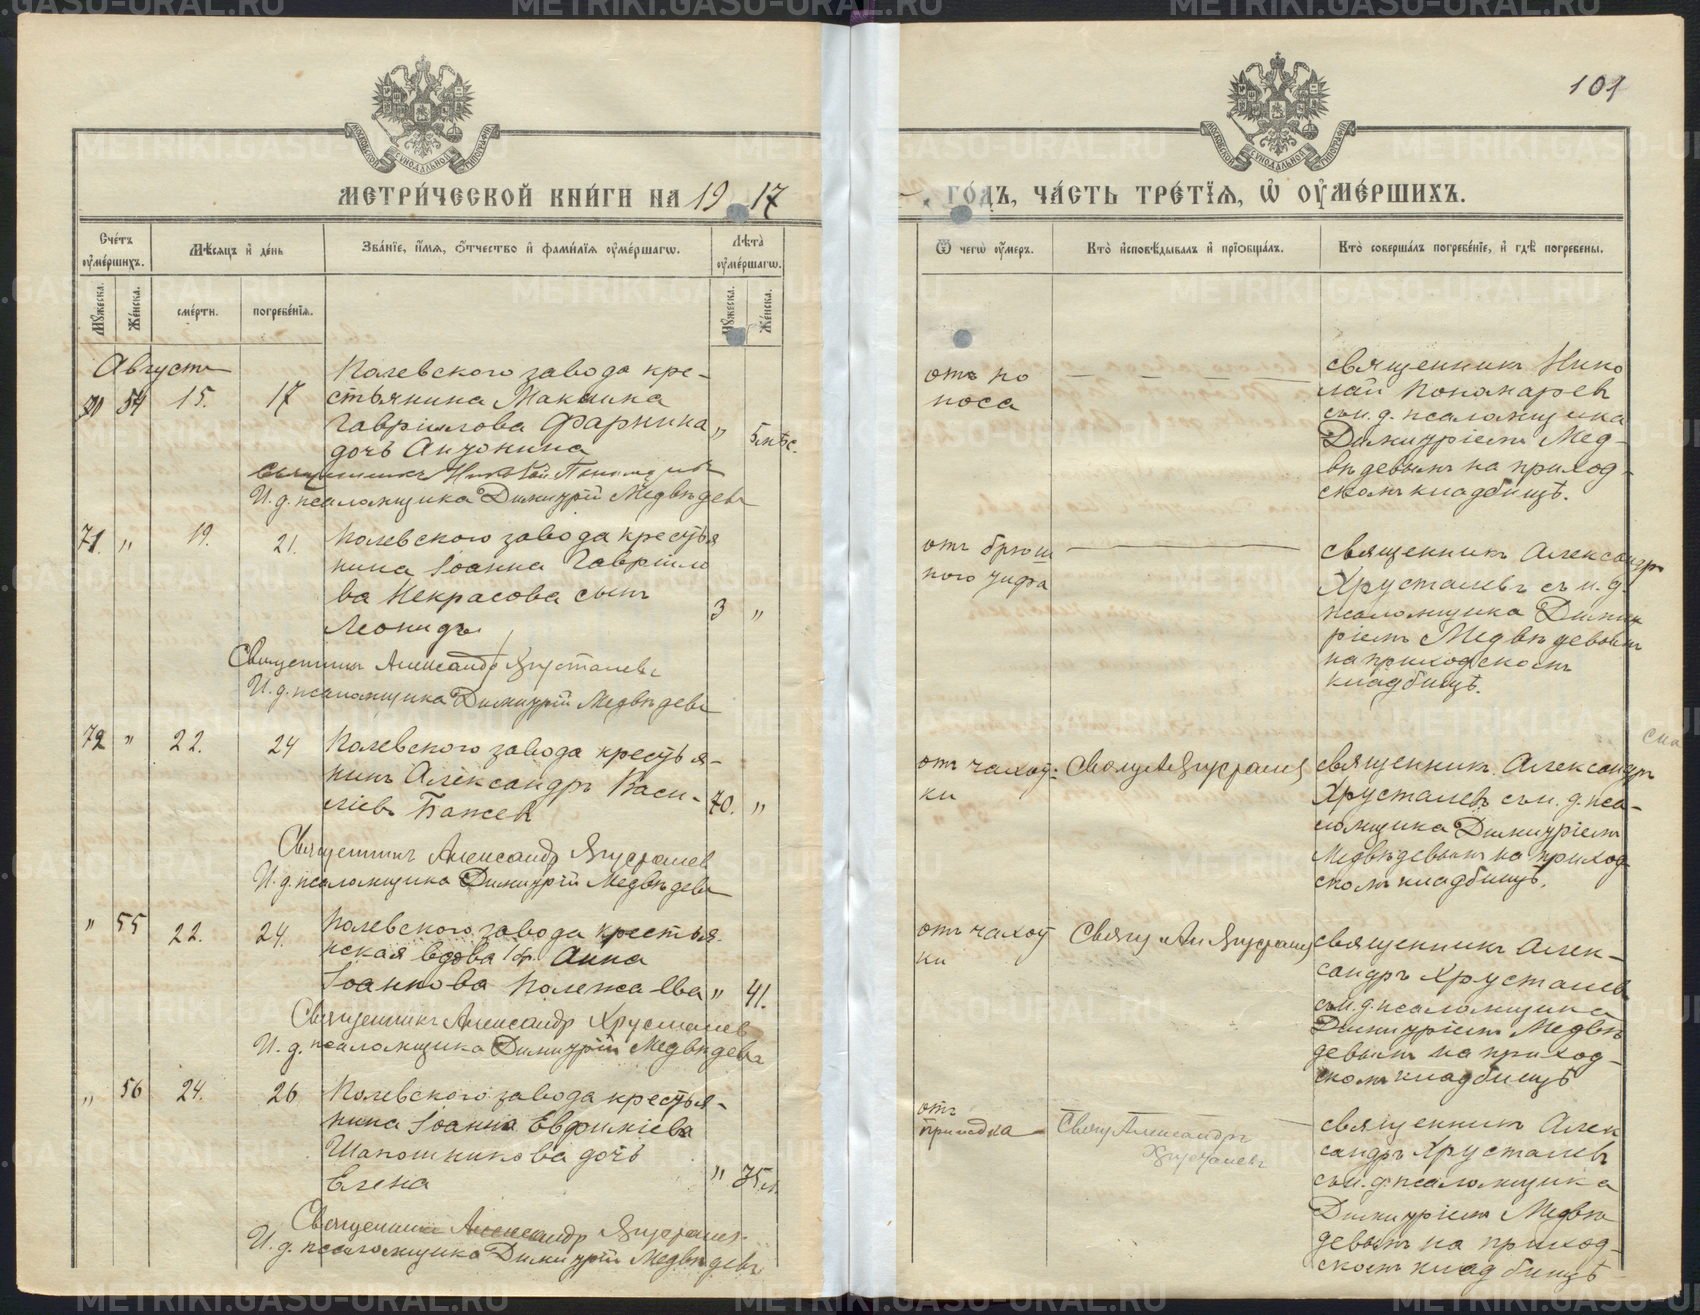 METRIKI.GASU-URAL.RU
101
МЕТРИ́ЧЕСКОЙ КНИ́ГИ НА 1917
ГО́ДЪ, ЧА́СТЬ ТРЕ́ТІѦ, Ѡ҆ ОУ҆МЕ́РШИХЪ.
Сче́тъ оу҆ме́ршихъ.
Мꙋ́жеска.
Же́нска.
Мѣ́сѧцъ и҆ де́нь
сме́рти.
погребе́нїѧ.
Зва́нїе, и҆́мѧ, ѻ҆́тчество и҆ фами́лїѧ оу҆ме́ршагѡ.
Лѣта̀ оу҆ме́ршагѡ.
Мꙋ́жеска.
Же́нска.
Ѿ чегѡ̀ оу҆́меръ.
Кто̀ и҆сповѣ́дывалъ и҆ прїѻбща́лъ.
Кто̀ соверша́лъ погребе́нїе, и҆ гдѣ̀ погребены̀.
Августъ
54 15. 17
Полевского завода кре-
стьянина Максима
Гавріилова Фарнина
дочь Антонина
" 5 мѣс.
Священникъ Николай Пономаревъ
И. д. псаломщика Димитрій Медвѣдевъ
отъ по
носа
священникъ Нико
лай Пономаревъ
съ и. д. псаломщика
Димитріемъ Мед-
вѣдевымъ на приход-
скомъ кладбищѣ.
71. " 19. 21.
Полевского завода крестья
нина Іоанна Гавріило
ва Некрасова сынъ
Леонидъ
3 "
Священникъ Александръ Хрусталевъ
И. д. псаломщика Димитрій Медвѣдевъ
отъ брюш
ного тифа
священникъ Александръ
Хрусталевъ съ и. д.
псаломщика Димит
ріемъ Медвѣдевымъ
на приходскомъ
кладбищѣ.
72 " 22. 24
Полевского завода крестья-
нинъ Александръ Васи-
ліевъ Бажев
70. "
Священникъ Александр Хрусталев
И. д. псаломщика Димитрій Медвѣдевъ
отъ чахот-
ки
Свящ Ал Хрусталев
священникъ Александръ
Хрусталевъ съ и. д. пса-
ломщика Димитріемъ
Медвѣдевымъ на приход
скомъ кладбищѣ.
" 55 22. 24.
Полевского завода крестья-
нская вдова Анна
Іоаннова Полежаева
" 41.
Священникъ Александр Хрусталев
И. д. псаломщика Димитрій Медвѣдевъ
отъ чахот
ки
Свящ Ал Хрусталев
священникъ Алек-
сандръ Хрусталев
съ и. д. псаломщика
Димитріемъ Медвѣ
девымъ на приход-
скомъ кладбищѣ
" 56 24. 26
Полевского завода крестья-
нина Іоанна Евфиміева
Шапошникова дочь
Елена
"
Священникъ Александр Хрусталев
И. д. псаломщика Димитрій Медвѣдевъ
отъ
припадка
Свящ Александръ
Хрусталевъ
священникъ Алек
сандръ Хрусталевъ
съ и. д. псаломщика
Димитріемъ Медвѣ
девымъ на приход-
скомъ кладбищѣ